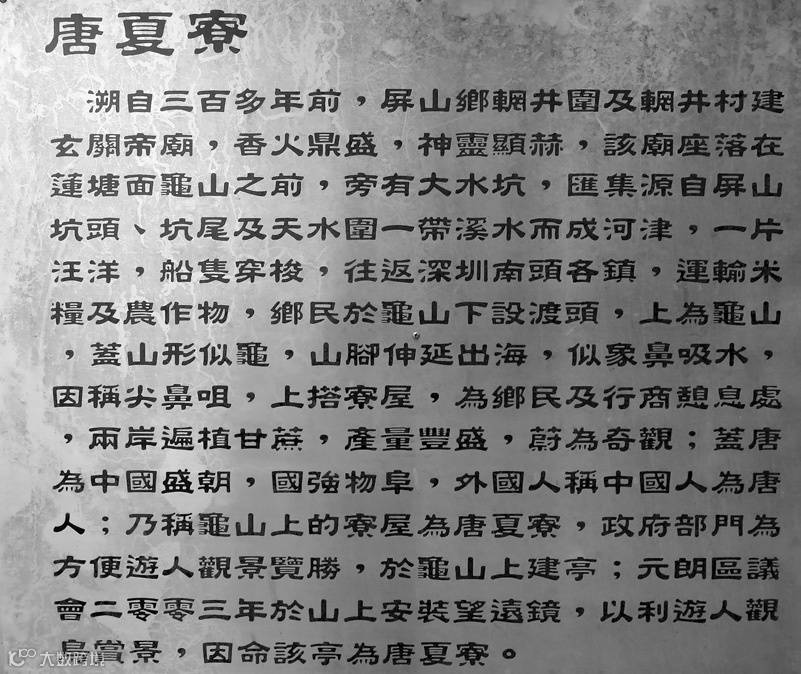 唐夏寮
溯自三百多年前，屏山鄉輞井圍及輞井村建
玄關帝廟，香火鼎盛，神靈顯赫，該廟座落在
蓮塘面龜山之前，旁有大水坑，匯集源自屏山
坑頭、坑尾及天水圍一帶溪水而成河津，一片
汪洋，船隻穿梭，往返深圳南頭各鎮，運輸米
糧及農作物，鄉民於龜山下設渡頭，上為龜山
，蓋山形似龜，山腳伸延出海，似象鼻吸水，
因稱尖鼻咀，上搭寮屋，為鄉民及行商憩息處
，兩岸遍植甘蔗，產量豐盛，蔚為奇觀；蓋唐
為中國盛朝，國強物阜，外國人稱中國人為唐
人；乃稱龜山上的寮屋為唐夏寮，政府部門為
方便遊人觀景覽勝，於龜山上建亭；元朗區議
會二零零三年於山上安裝望遠鏡，以利遊人觀
鳥賞景，因命該亭為唐夏寮。
大数跨境